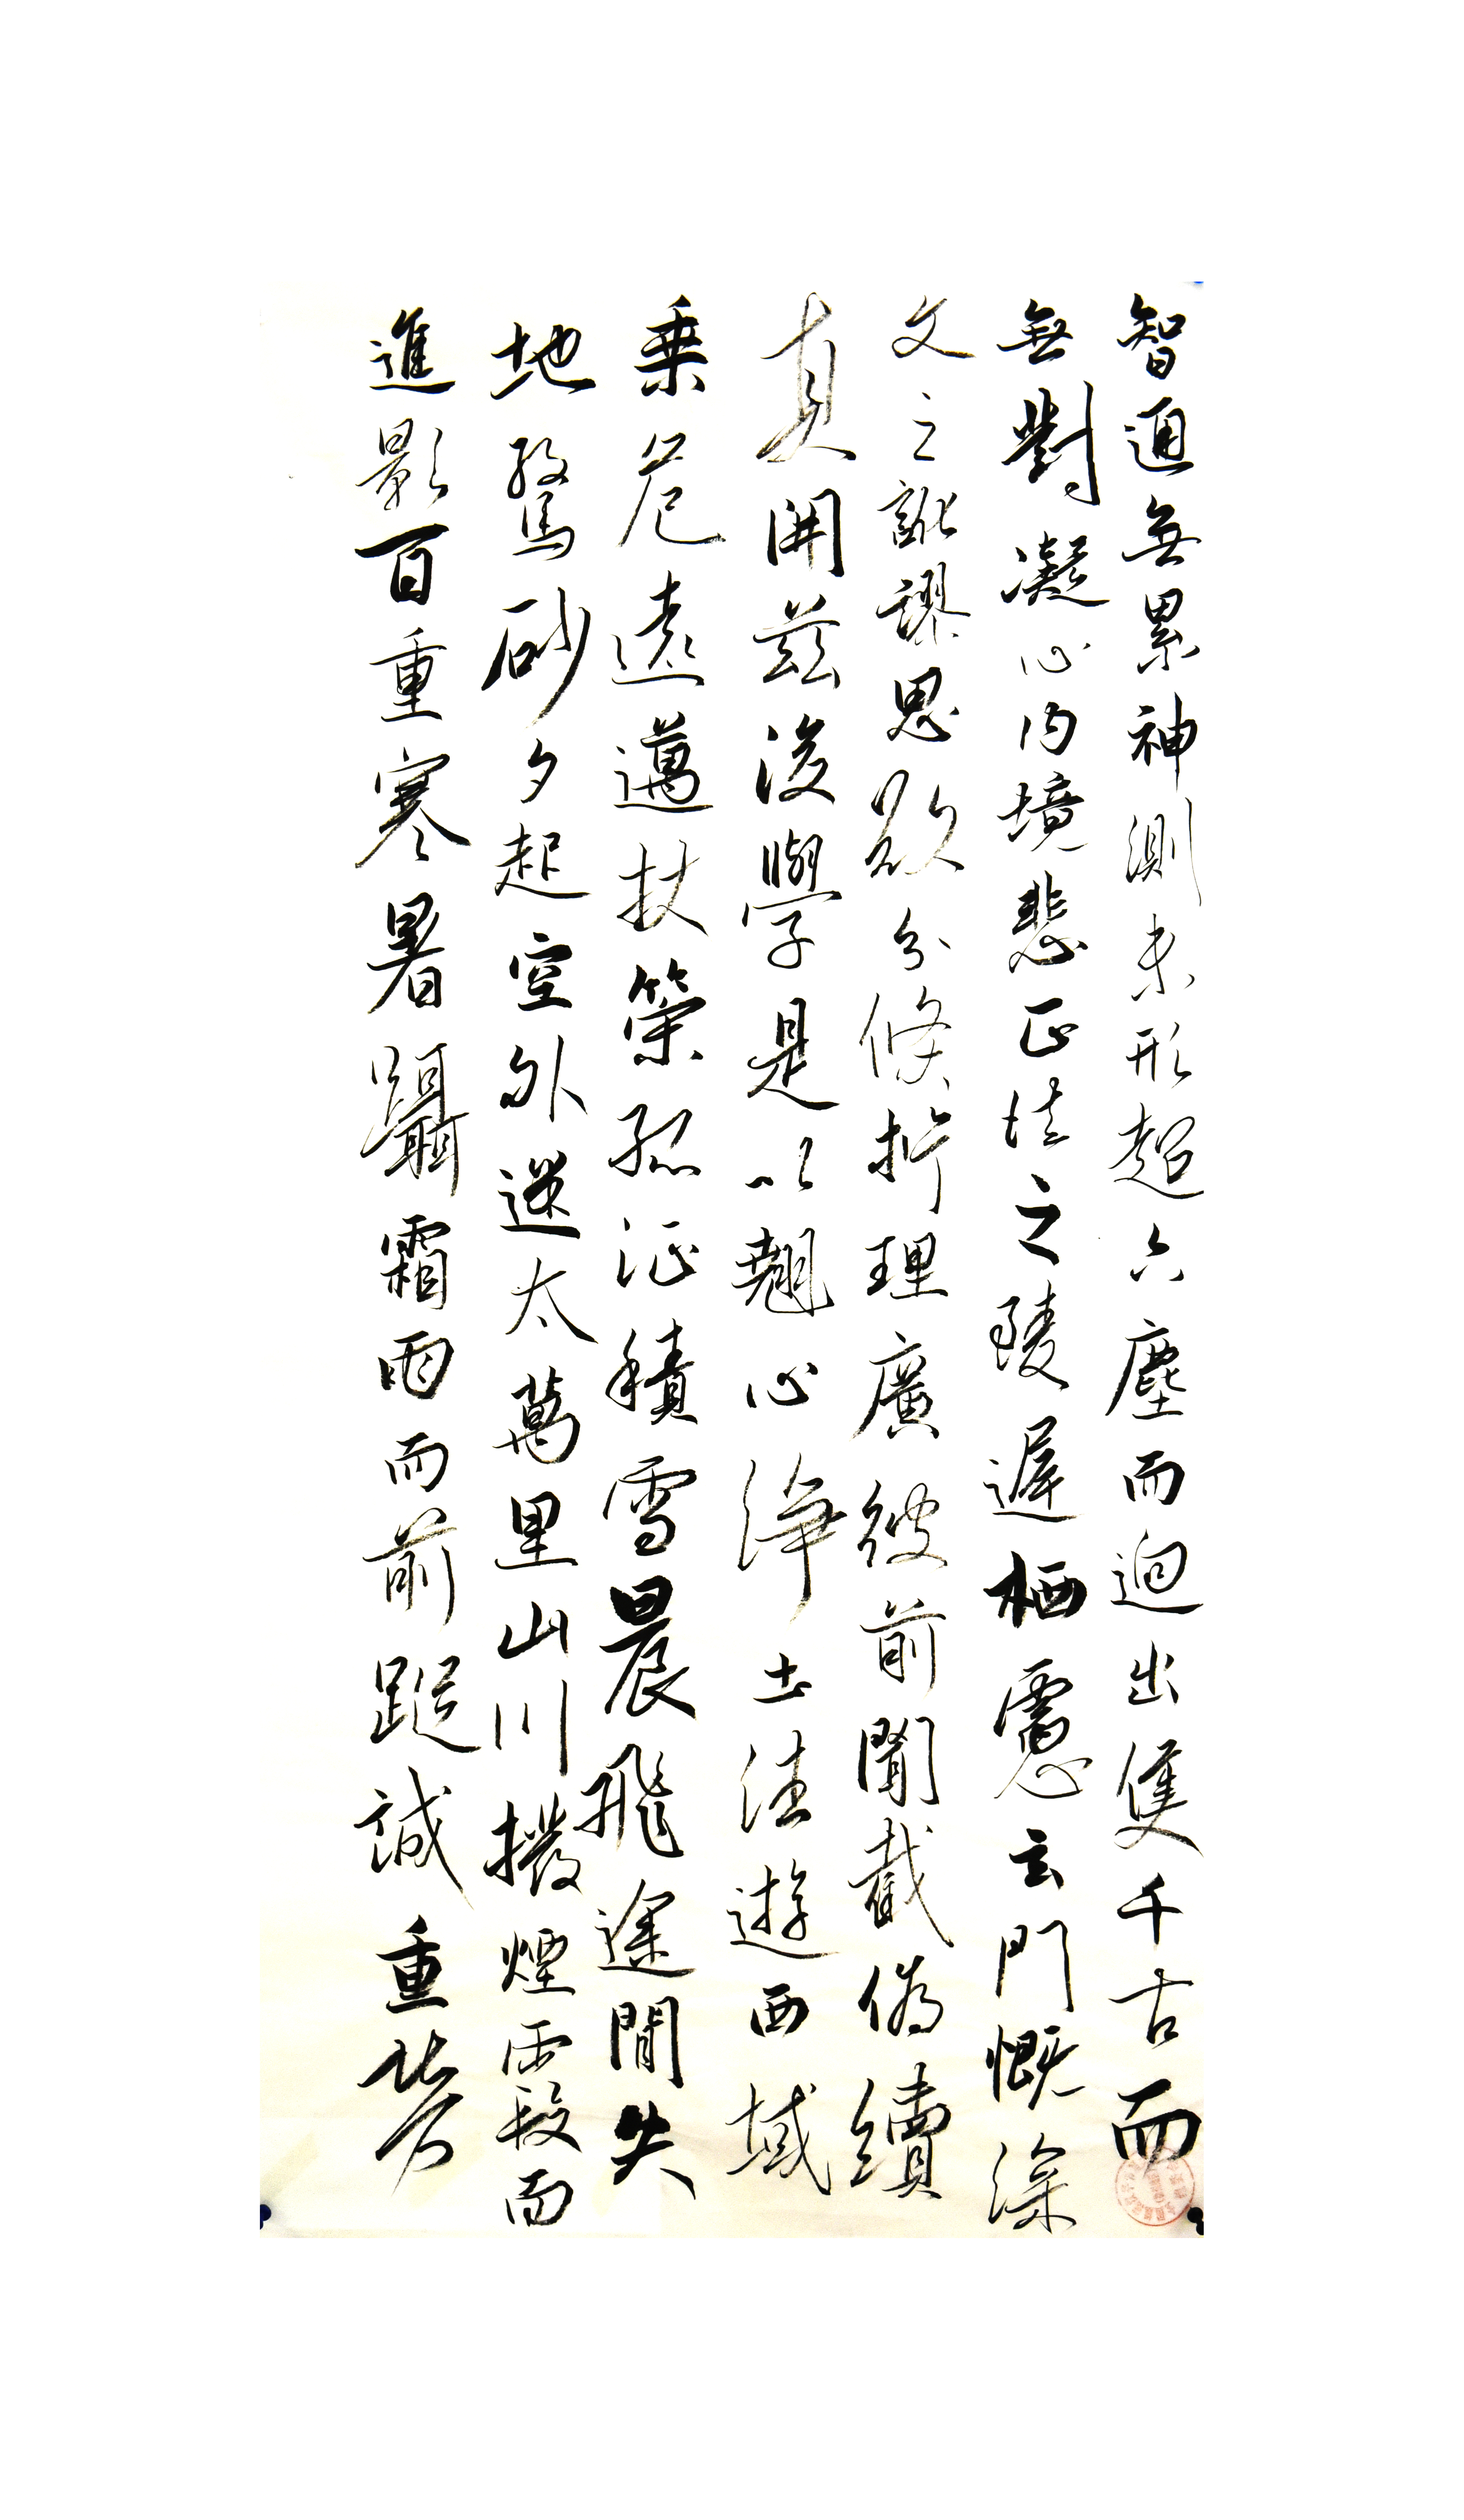 智通無累神測未形超六塵而迥出隻千古而
無對凝心內境悲正法之陵遲栖慮玄門慨深
文之訛謬思欲分條析理廣彼前聞截偽續
真開茲後學是以翹心淨土法遊西域
乗危遠邁杖策孤征積雪晨飛途間失
地驚砂夕起空外迷天萬里山川撥煙霞而
進影百重寒暑躡霜雨而前蹤誠重勞